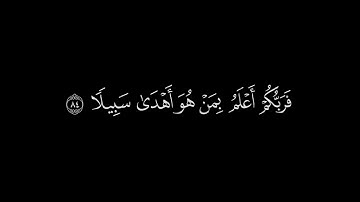 فَرَبُّكُمْ أَعْلَمُ بِمَنْ هُوَ أَهْدَىٰ سَبِيلًا ۝٨٤